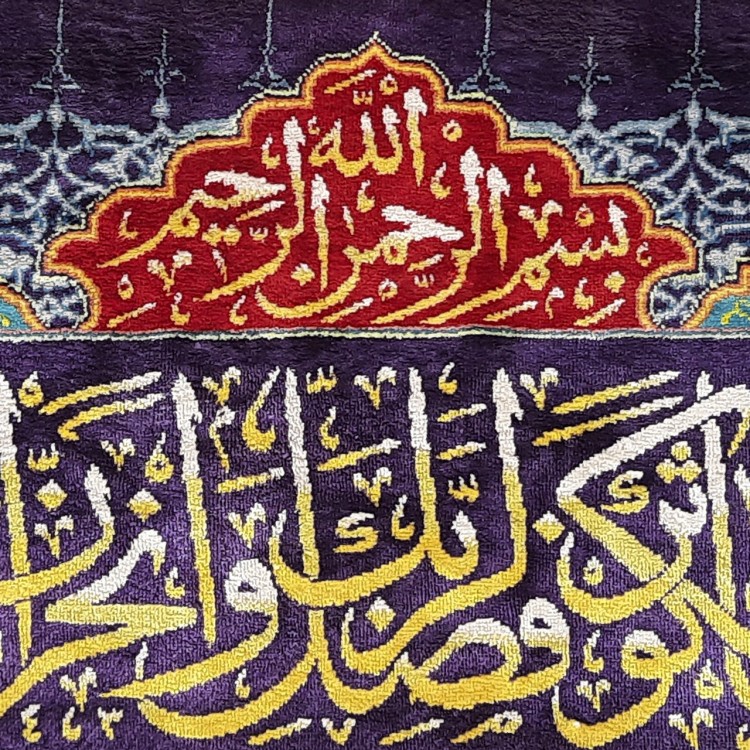 بسم الله الرحمن الرحيم
الكوثر فصل لربك وانحر